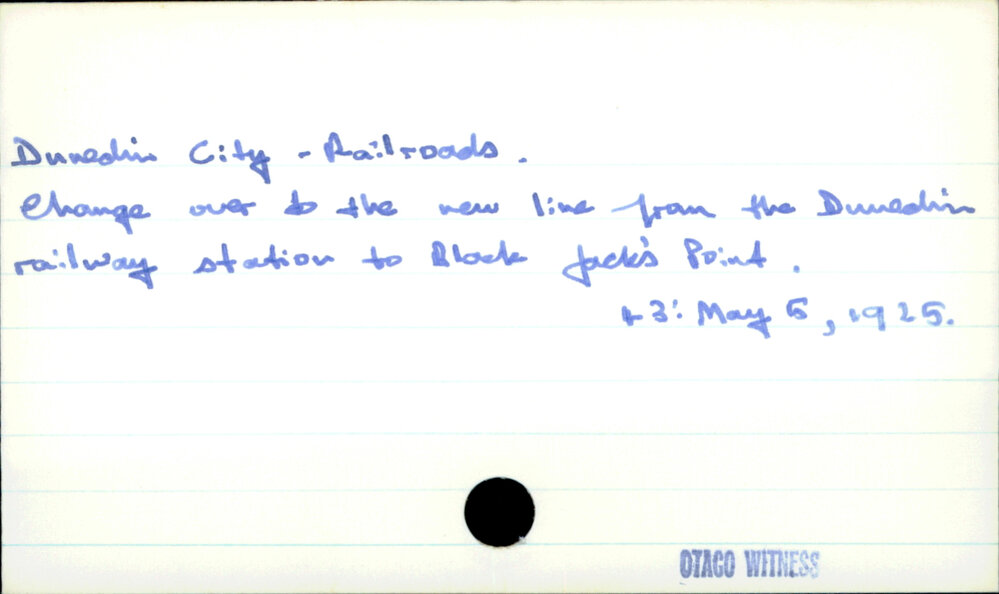 Dunedin City - Railroads.
Change over to the new line from the Dunedin
railway station to Black Jack's Point.
43: May 5, 1925.
OTAGO WITNESS